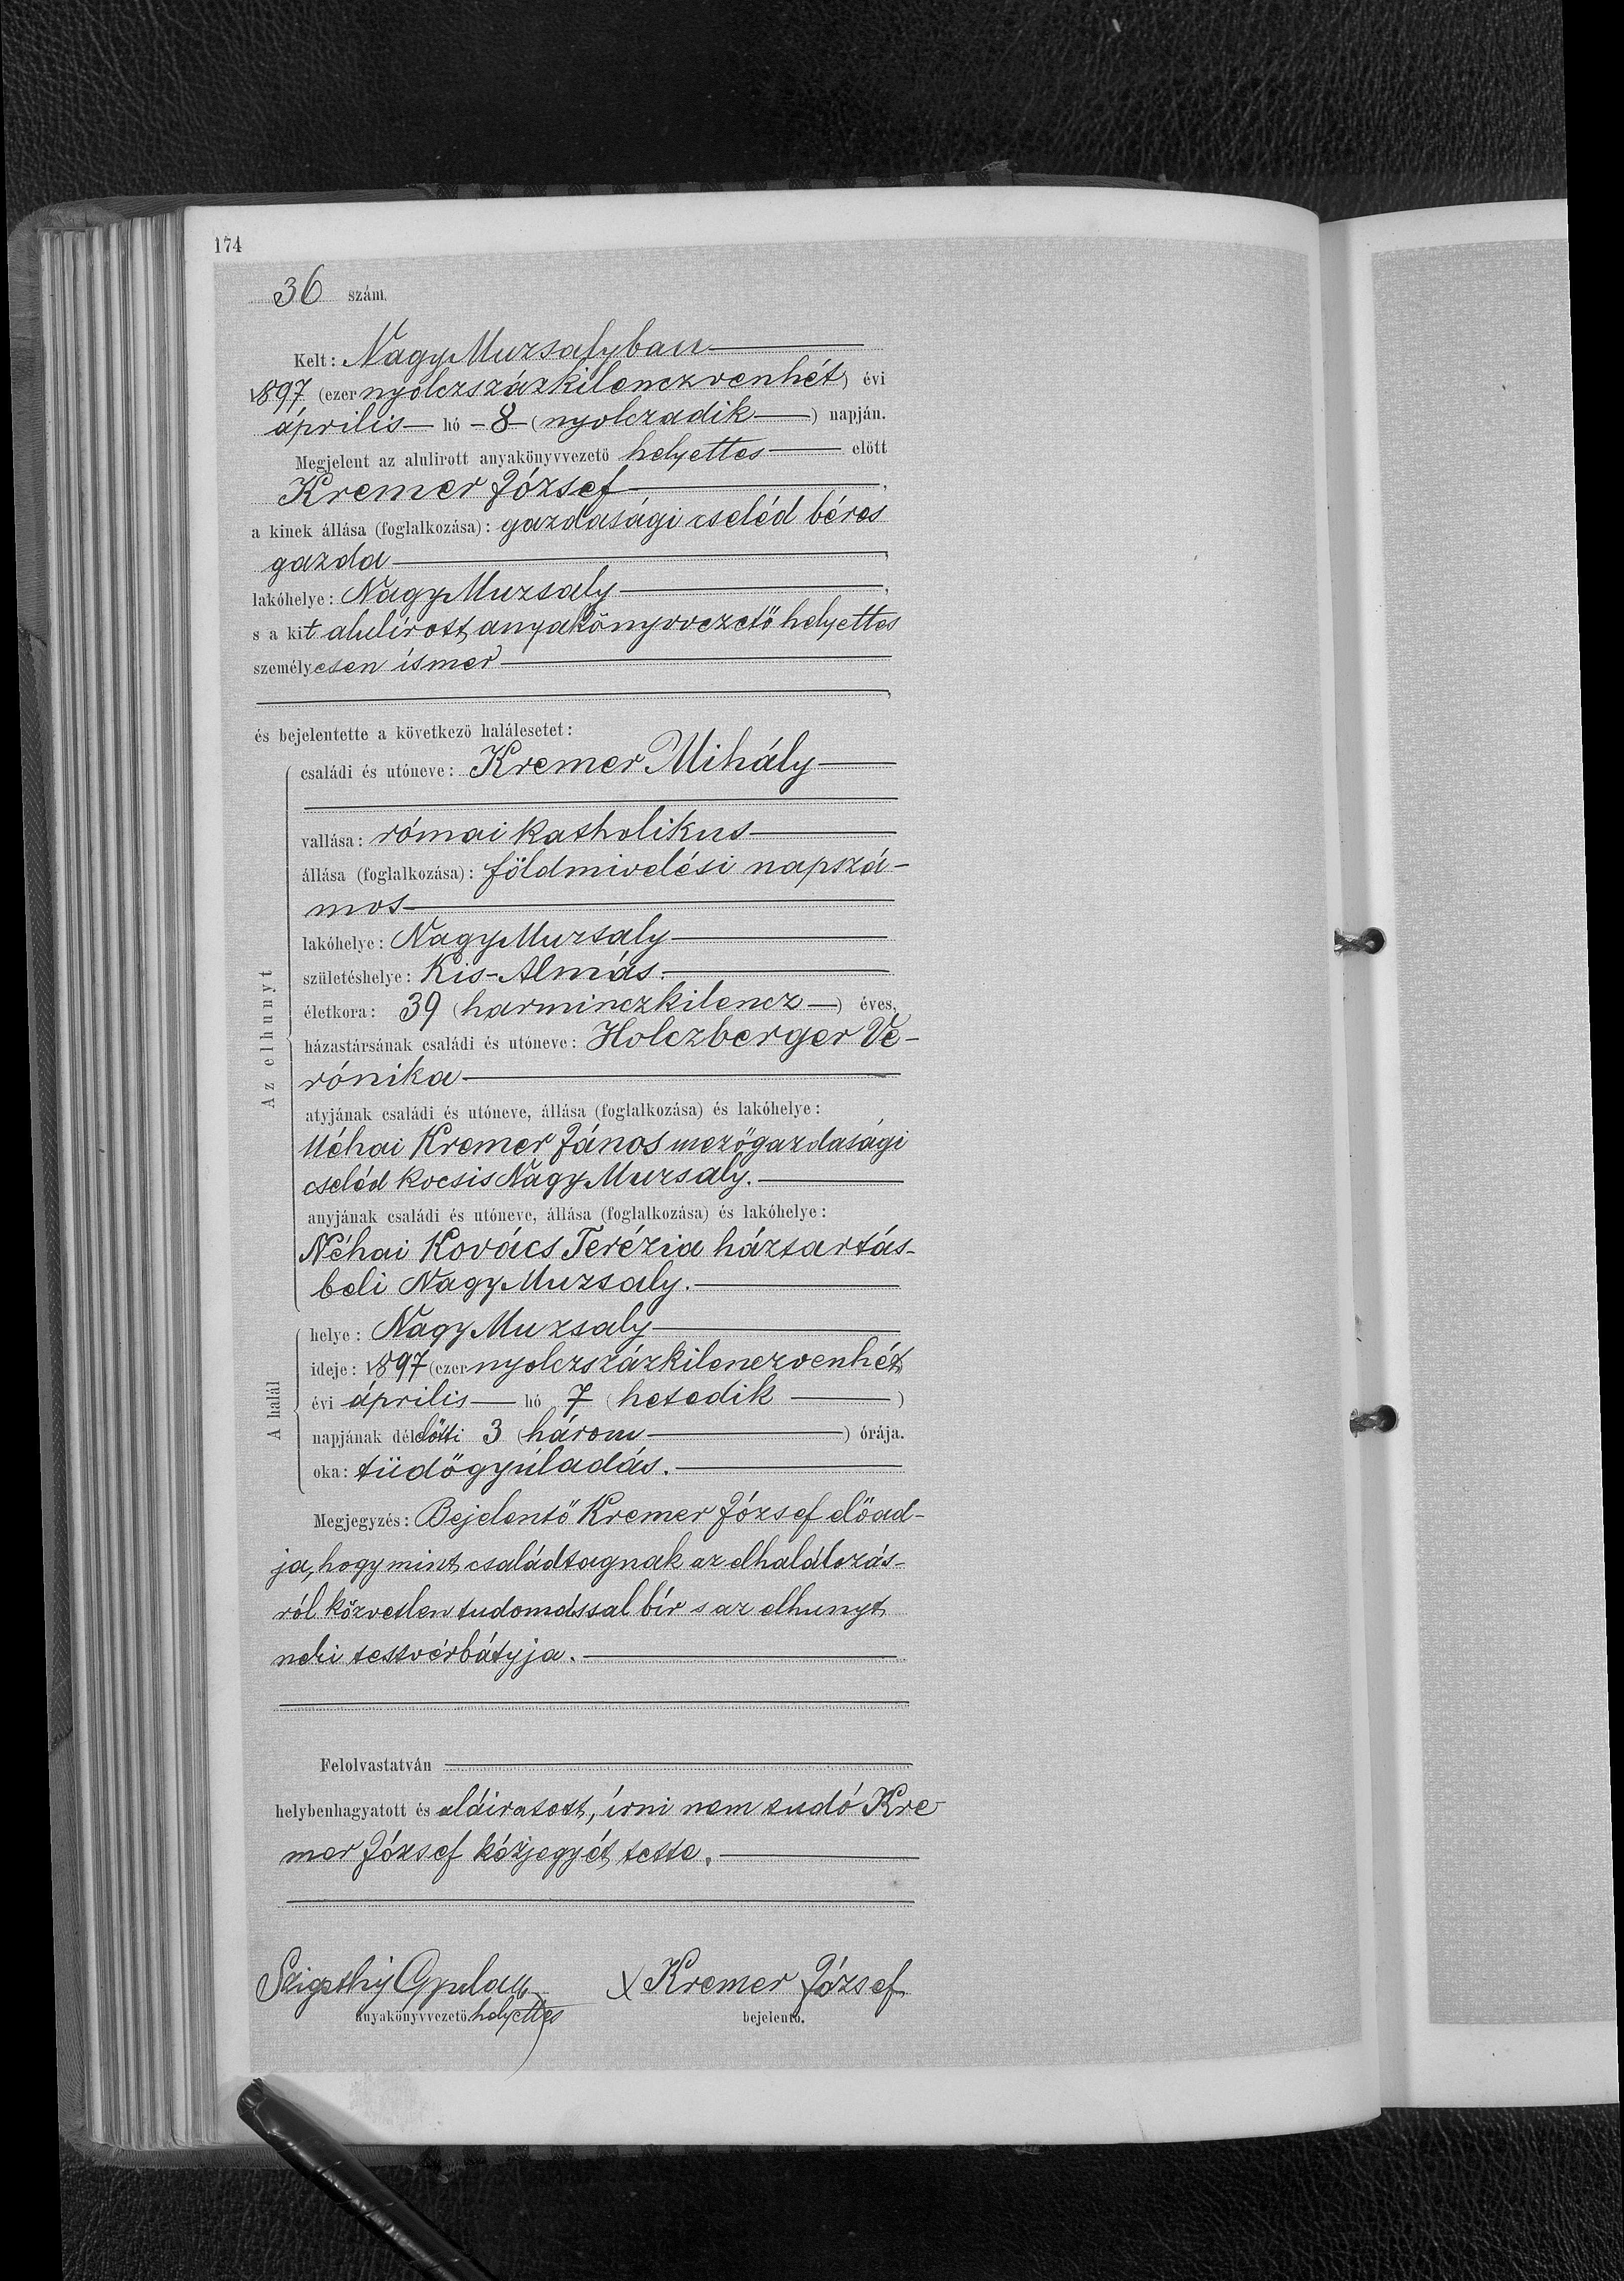 174
36 szám.
Kelt: Nagy Muzsalyban
1897 (ezer nyolczszázkilenczvenhét) évi
április hó - 8 - (nyolczadik) napján.
Megjelent az alulirott anyakönyvvezető helyettes előtt
Kremer József,
a kinek állása (foglalkozása): gazdasági cseléd béres
gazda,
lakóhelye: Nagy Muzsaly,
s a kit alulírott anyakönyvvezető helyettes
személyesen ismer
,
és bejelentette a következő halálesetet:
Az elhunyt
családi és utóneve: Kremer Mihály
vallása: római katholikus
állása (foglalkozása): földmivelési napszá-
mos
lakóhelye: Nagy Muzsaly
születéshelye: Kis-Almás.
életkora: 39 (harminczkilencz) éves,
házastársának családi és utóneve: Holczberger Ve-
rónika
atyjának családi és utóneve, állása (foglalkozása) és lakóhelye:
Néhai Kremer János mezőgazdasági
cseléd kocsis Nagy Muzsaly.
anyjának családi és utóneve, állása (foglalkozása) és lakóhelye:
Néhai Kovács Terézia háztartás-
beli Nagy Muzsaly.
A halál
helye: Nagy Muzsaly
ideje: 1897 (ezer nyolczszázkilenczvenhét
évi április hó 7 (hetedik)
napjának délelőtti 3 (három) órája.
oka: tüdőgyúladás.
Megjegyzés: Bejelentő Kremer József előad-
ja, hogy mint családtagnak az elhalálozás-
ról közvetlen tudomással bír s az elhunyt
neki testvérbátyja.
Felolvastatván
helybenhagyatott és aláiratott, írni nem tudó Kre
mer József kézjegyét tette.
Gyula
X Kremer József
anyakönyvvezető helyettes
bejelentő.